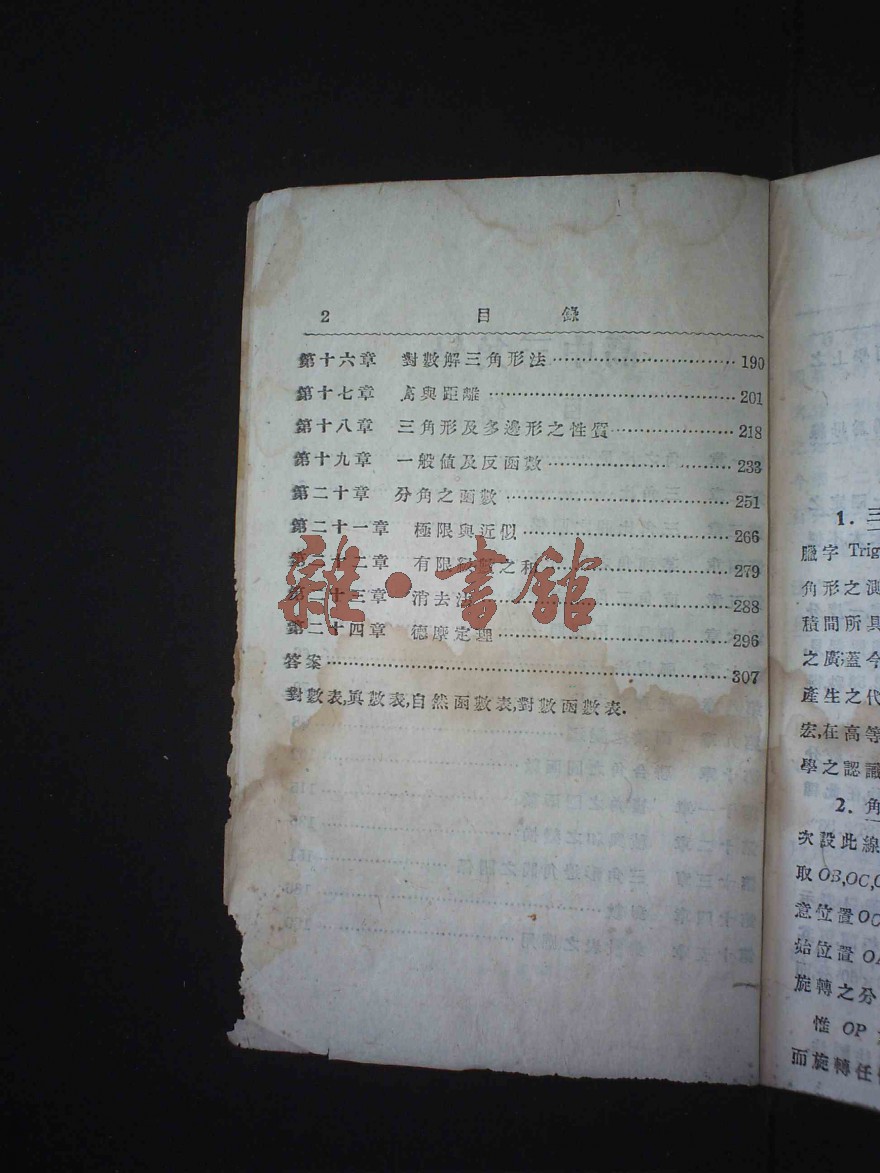 2 目錄
第十六章 對數解三角形法 190
第十七章 高與距離 201
第十八章 三角形及多邊形之性質 218
第十九章 一般値及反函數 233
第二十章 分角之函數 251
第二十一章 極限與近似 266
第二十二章 有限級數之和 279
第二十三章 消去法 288
第二十四章 德摩定理 296
答案 307
對數表,眞數表,自然函數表,對數函數表.
雜·書館
1. 三
臘字 Trig
角形之測
積間所具
之廣蓋今
產生之代
宏,在高等
學之認識
2. 角
次設此線
取OB,OC,
意位置OC
始位置OA
旋轉之分
惟 OP
而旋轉任